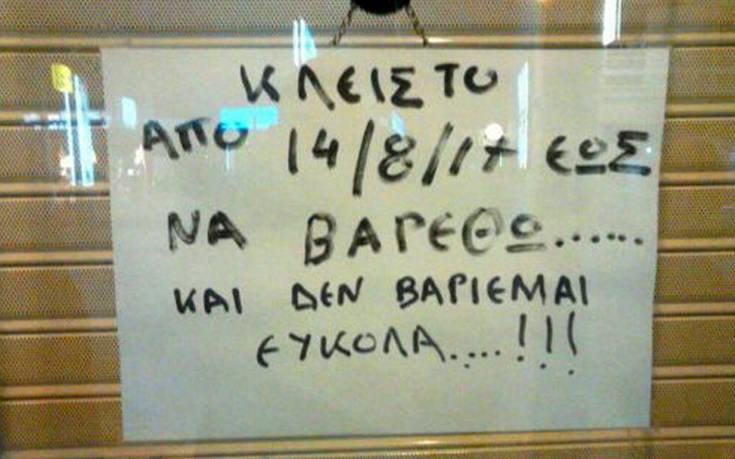 ΚΛΕΙΣΤΟ
ΑΠΟ 14/8/17 ΕΩΣ
ΝΑ ΒΑΡΕΘΩ......
ΚΑΙ ΔΕΝ ΒΑΡΙΕΜΑΙ
ΕΥΚΟΛΑ....!!!